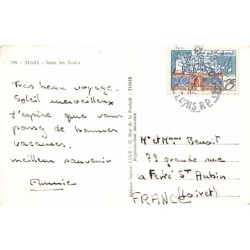 TUNIS - Dans les Souks
Très beau voyage.
Soleil merveilleux
J'espère que vous
passez de bonnes
vacances.
meilleur souvenir
TUNIS
Reproduction interdite
25
TUNIS R.P.
Mr et Mme Benoit
79 grande rue
La Ferté St Aubin
(Loiret)
FRANCE